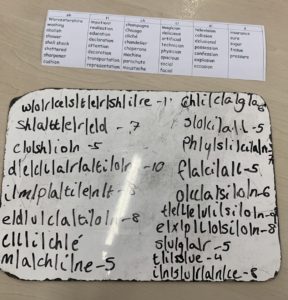 Worcestershire impatient champagne magician television insurance
washing realisation Chicago delicious collision sure
education cliché artificial sugar
shower declaration chandelier technician possession tissue
shell shock attention chaperone physician confession pressure
shattered decoration machine spacious explosion
sharpener transportation parachute social occasion
cushion representation moustache facial
sh/a/tt/e/r/e/d - 7
c/u/sh/i/o/n - 5
d/e/c/l/a/r/a/t/i/o/n - 10
i/m/p/a/t/i/e/n/t - 8
e/d/u/c/a/t/i/o/n - 8
c/l/i/ch/é
m/a/ch/i/ne - 5
ch/i/c/a/g/o
s/o/c/i/a/l - 5
f/a/c/i/a/l - 5
e/x/p/l/o/s/i/o/n - 8
s/u/g/ar - 5
t/i/ss/ue - 4
i/n/s/u/r/a/n/ce - 8